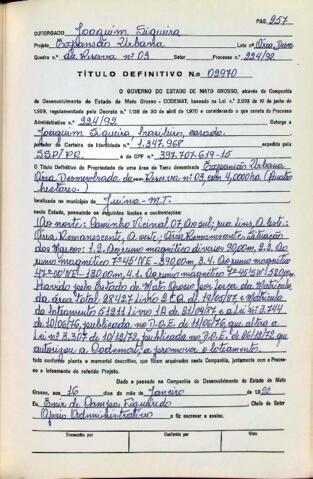 PÁG. 257
OUTORGADO Joaquim Siqueira
Projeto Expansão Urbana Lote nº Área Desm.
Quadra n.º de Reserva nº 03 Setor Processo n.º 224/92
TÍTULO DEFINITIVO N.º 02970
O GOVERNO DO ESTADO DE MATO GROSSO, através da Companhia
de Desenvolvimento do Estado de Mato Grosso - CODEMAT, baseado na Lei n.º 2.933 de 10 de junho
de 1969, regulamentada pelo Decreto n.º 1.138 de 30 de abril de 1970 e considerando o que consta do Processo
Administrativo n.º 224/92 Outorga a
Joaquim Siqueira, brasileiro, casado,
portador da Carteira de Identidade n.º 1.347.968 expedida pela
SSP/PR. e do CPF n.º 397.707-619-15
o Título Definitivo de Propriedade de uma área de Terra denominada Expansão Urbana
Área Desmembrada da Reserva nº 03, com 4,000ha. (Quatro
hectares.)
localizada no município de Juína-MT.
neste Estado, possuindo os seguintes limites e confrontações:
Ao norte: Caminho Vicinal 07. Ao sul; rua lins, A leste:
Área Remanescente, A oeste; Área Remanescente. Situação
dos Marcos: 1.2. Ao rumo magnético diverso 90,00m, 2.3. Ao
rumo magnético 7º45'NE - 390,00m, 3.4. Ao rumo magnético
47º10'NE - 130,00m, 4.1. Ao rumo magnético 7º45'SW 1520,00m.
Havido pelo Estado de Mato Grosso por força da Matrícula
da área total 28427 Livro 2 e matrícula
do loteamento 51211 Livro 1A de 21/04/87 e a Lei nº 3.744
de 10/06/76, publicado no D.O.E. de 11/06/76, que altera a
Lei nº 3.307 de 18/12/72, publicado no D.O.E. de 26/12/72 que
autorizou a Codemat, a promover o loteamento.
tudo conforme planta e memorial descritivo, que ficam arquivados nesta Companhia, juntamente com o Processo
e loteamento do referido Projeto.
Dado e passado na Companhia de Desenvolvimento do Estado de Mato
Grosso, aos 16 dias do mês de Janeiro de 1992
Eu, Enir de Campos Figueiredo Chefe do Setor
Apoio Administrativo o fiz escrever e assino.
Transcrito por Conferido por Visto